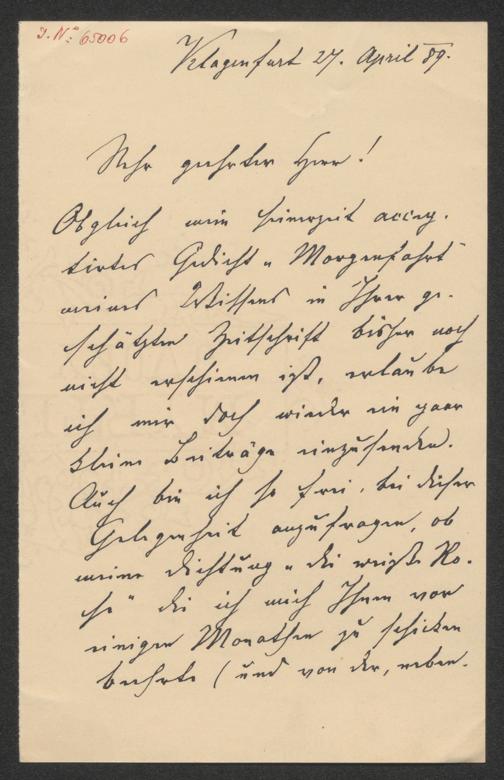 J. N: 65006
Klagenfurt 27. April 89.
Sehr geehrter Herr!
Obgleich mein seinerzeit accep-
tirtes Gedicht „Morgenfahrt"
meines Wissens in Ihrer ge-
schätzten Zeitschrift bisher noch
nicht erschienen ist, erlaube
ich mir doch wieder ein paar
kleine Beiträge einzusenden.
Auch bin ich so frei, bei dieser
Gelegenheit anzufragen, ob
meine Dichtung „Die weiße Ro-
se" die ich mich Ihnen vor
einigen Monathen zu schicken
beehrte (und von der, neben-